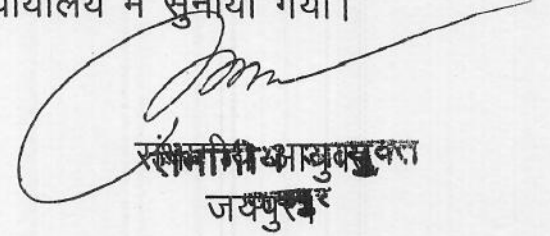 न्यायालय में सुनाया गया।
संभागीय आयुक्त
जयपुर